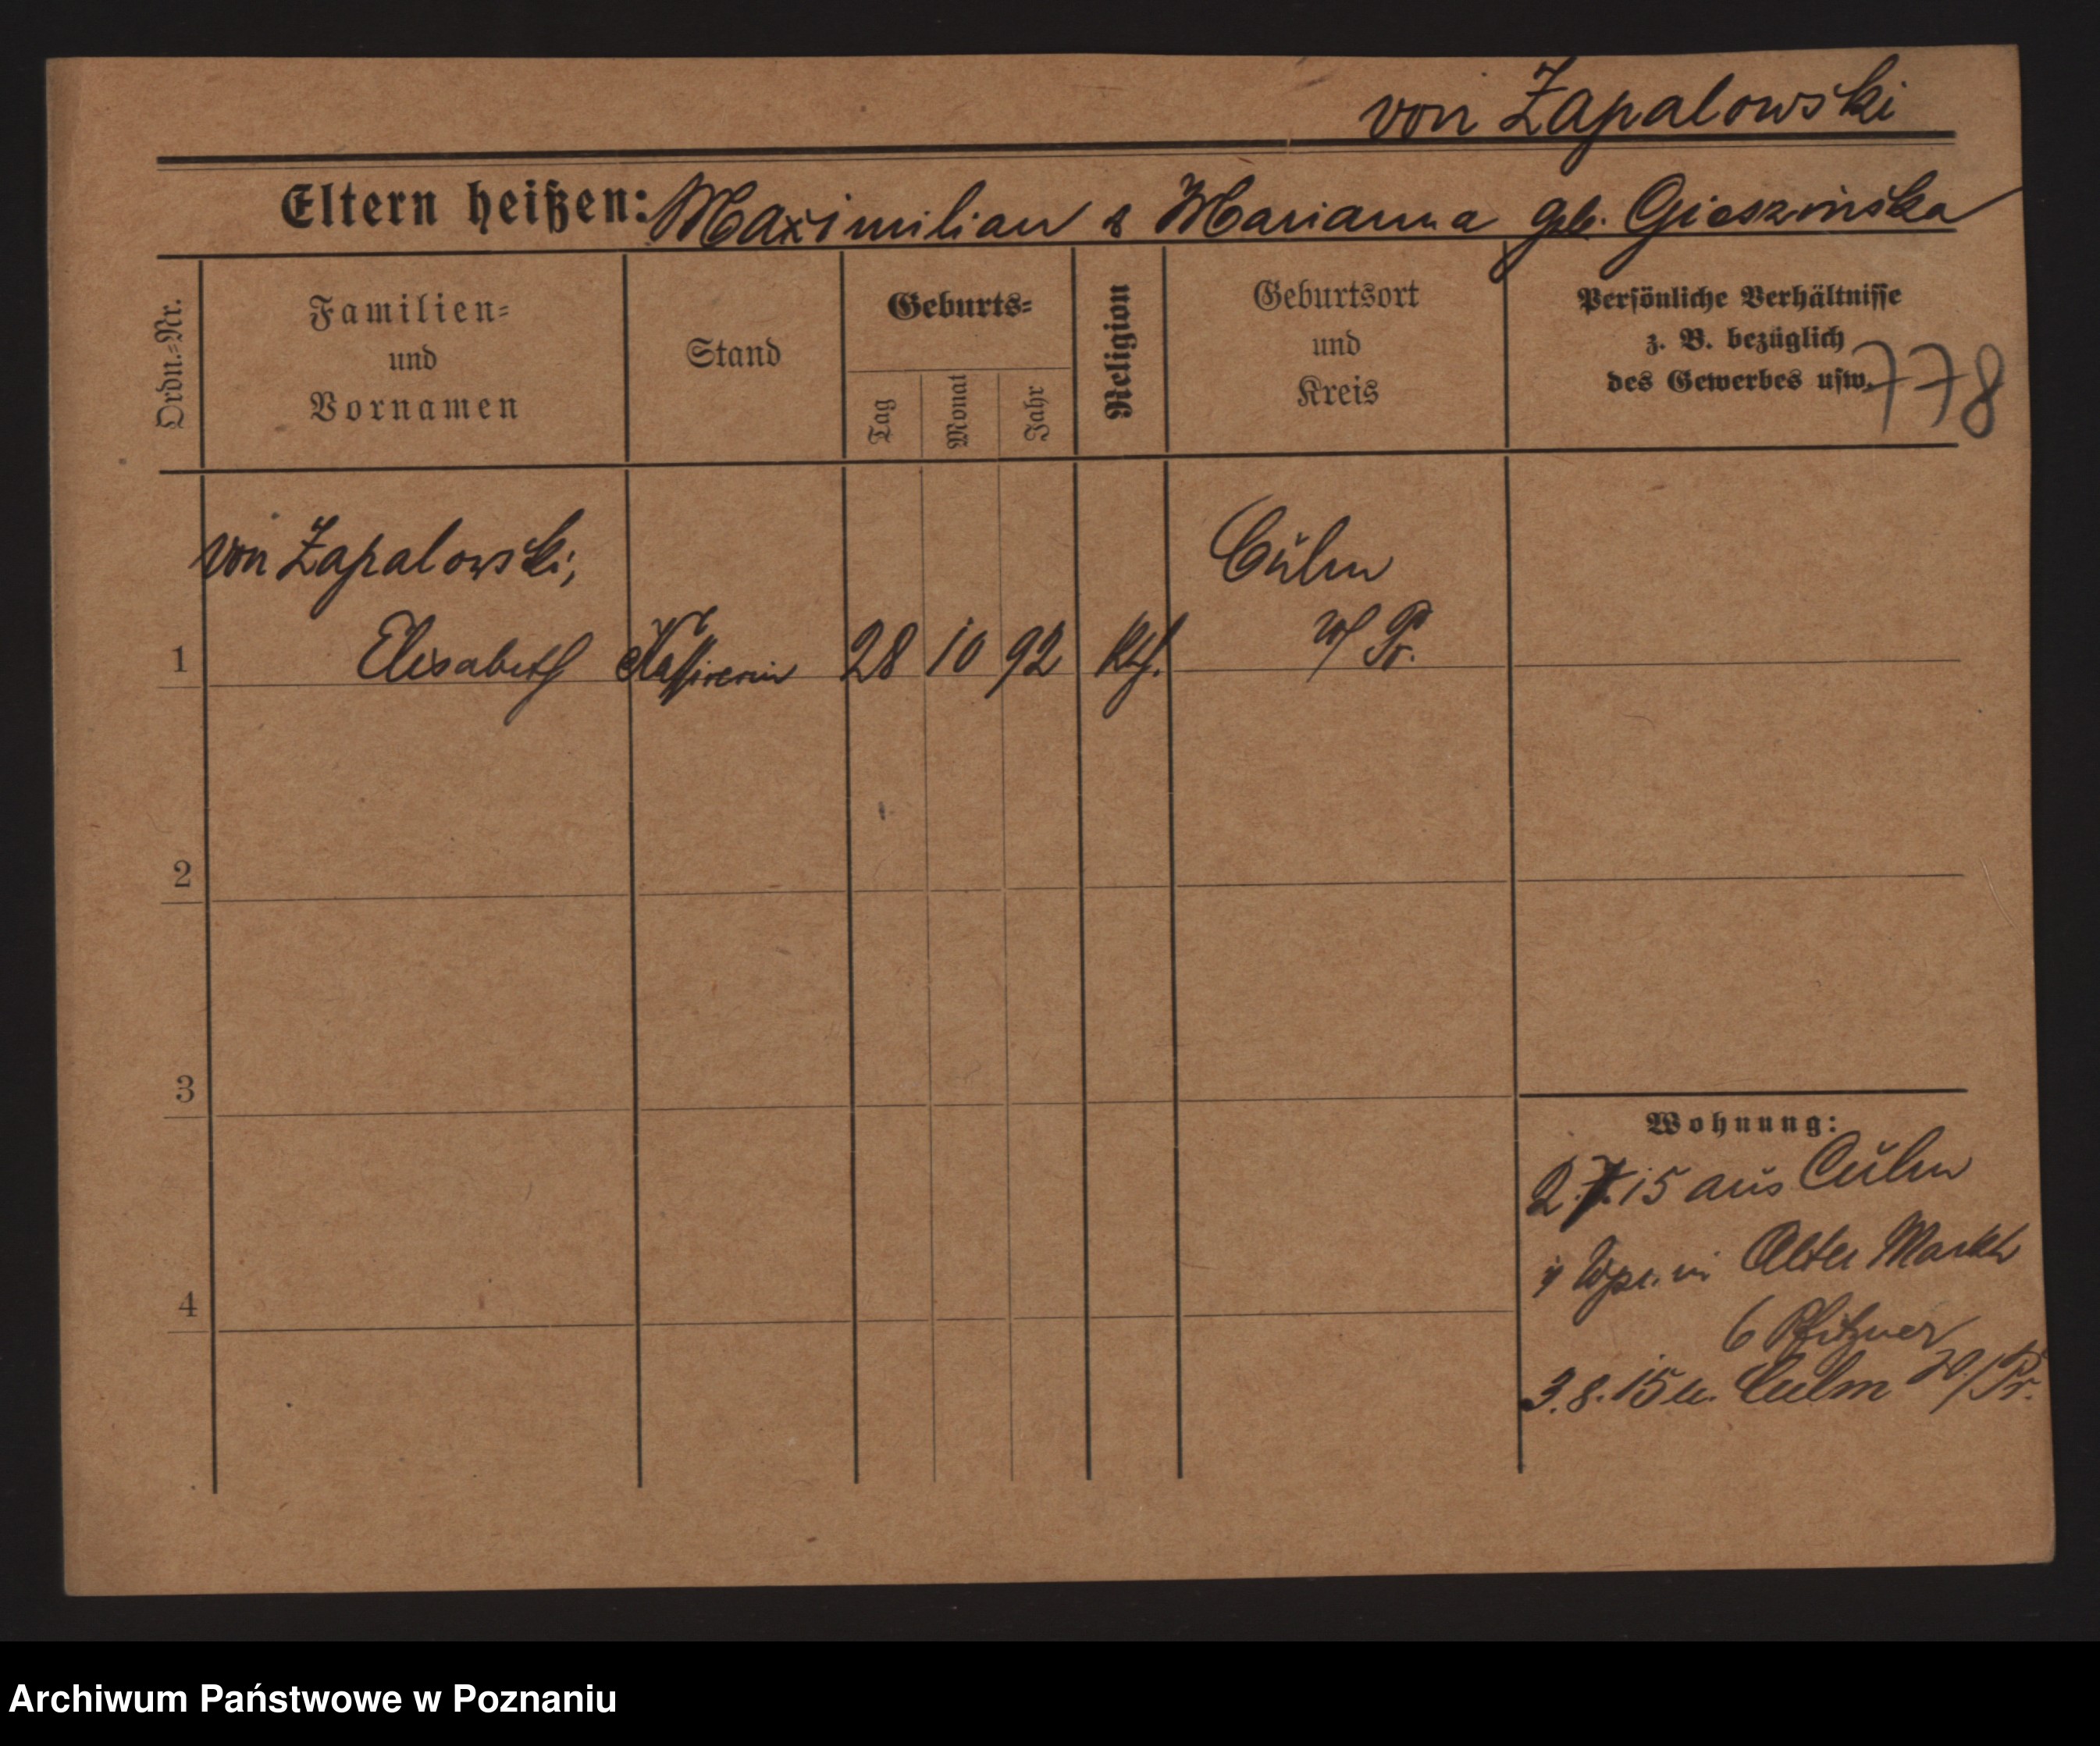 von Zapalowski
Eltern heißen: Maximilian & Marianna geb. Gieszinska
Ordn.-Nr.
Familien-
und
Vornamen
Stand
Geburts-
Tag
Monat
Jahr
Religion
Geburtsort
und
Kreis
Persönliche Verhältnisse
z. B. bezüglich
des Gewerbes usw.
778
von Zapalowski,
Culm
1 Elisabeth Kassirerin 28 10 92 kth. W/Pr.
2
3
4
Wohnung:
2.7.15 aus Culm
Alter Markt
6 Pfitzner
3.8.15 n. Culm W/Pr.
Archiwum Państwowe w Poznaniu